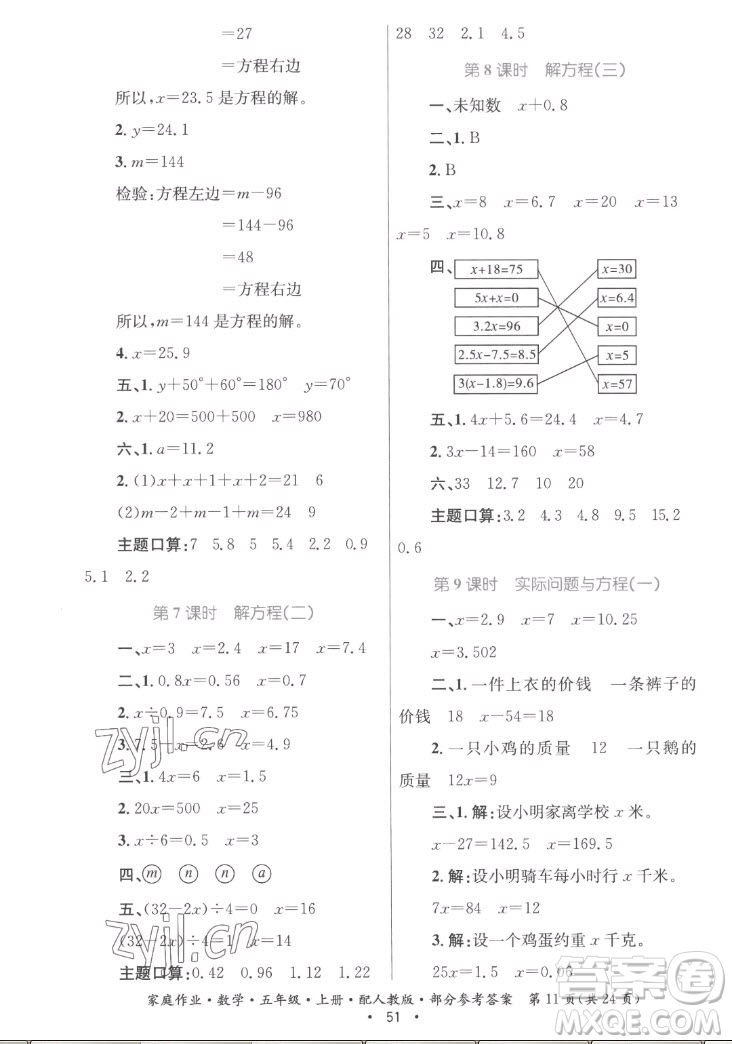 =27
=方程右边
所以,x=23.5是方程的解。
2. y=24.1
3. m=144
检验:方程左边=m-96
=144-96
=48
=方程右边
所以,m=144是方程的解。
4. x=25.9
五、1. y+50°+60°=180° y=70°
2. x+20=500+500 x=980
六、1. a=11.2
2. (1)x+x+1+x+2=21 6
(2)m-2+m-1+m=24 9
主题口算:7 5.8 5 5.4 2.2 0.9
5.1 2.2
第7课时 解方程(二)
一、x=3 x=2.4 x=17 x=7.4
二、1. 0.8x=0.56 x=0.7
2. x÷0.9=7.5 x=6.75
3. 7.5-x=2.6 x=4.9
三、1. 4x=6 x=1.5
2. 20x=500 x=25
3. x÷6=0.5 x=3
四、m n n a
五、(32-2x)÷4=0 x=16
(32-2x)÷4=1 x=14
主题口算:0.42 0.96 1.12 1.22
28 32 2.1 4.5
第8课时 解方程(三)
一、未知数 x+0.8
二、1. B
2. B
三、x=8 x=6.7 x=20 x=13
x=5 x=10.8
四、
x+18=75 x=30
5x+x=0 x=6.4
3.2x=96 x=0
2.5x-7.5=8.5 x=5
3(x-1.8)=9.6 x=57
五、1. 4x+5.6=24.4 x=4.7
2. 3x-14=160 x=58
六、33 12.7 10 20
主题口算:3.2 4.3 4.8 9.5 15.2
0.6
第9课时 实际问题与方程(一)
一、x=2.9 x=7 x=10.25
x=3.502
二、1. 一件上衣的价钱 一条裤子的
价钱 18 x-54=18
2. 一只小鸡的质量 12 一只鹅的
质量 12x=9
三、1. 解:设小明家离学校x米。
x-27=142.5 x=169.5
2. 解:设小明骑车每小时行x千米。
7x=84 x=12
3. 解:设一个鸡蛋约重x千克。
25x=1.5 x=0.06
家庭作业·数学·五年级·上册·配人教版·部分参考答案 第11页(共24页)
· 51 ·
zyjl.cn
zyjl.cn
答案圈
MXQE.COM